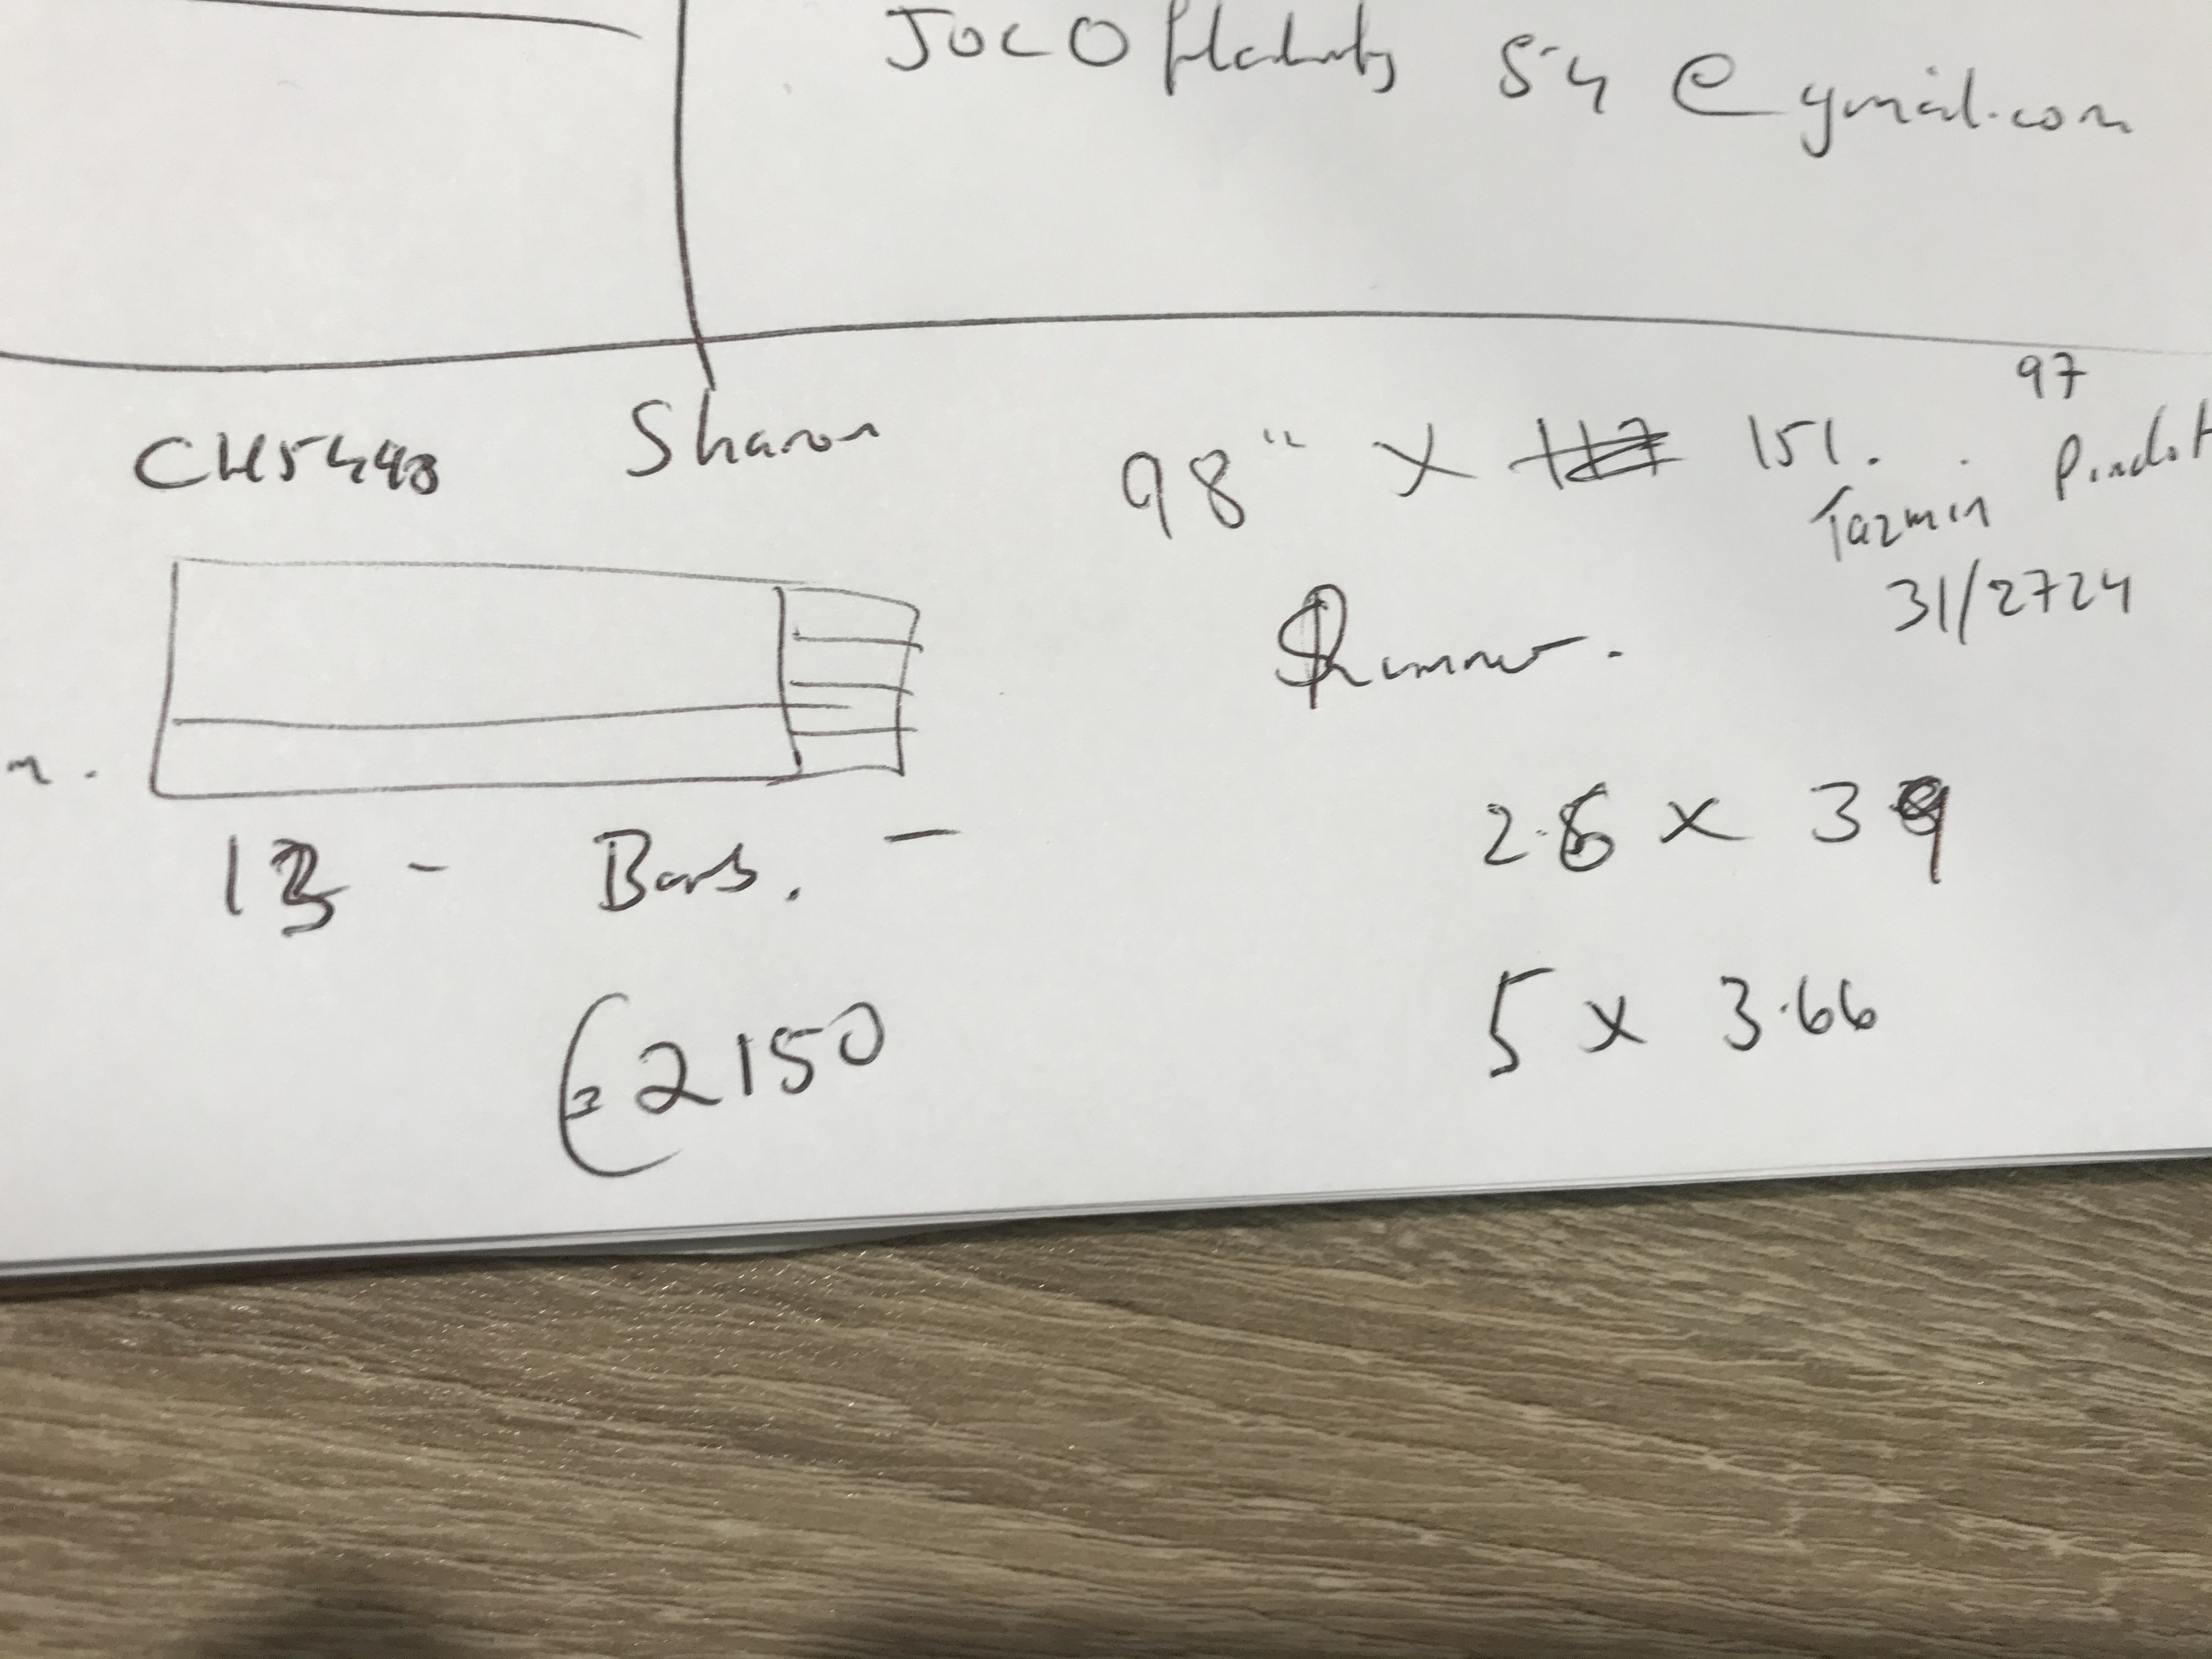 54 @ gmail.com
97
Sharon 98" x 151.
Tazmin Pindot
31/2724
Runner.
2.6 x 39
13 - Bars. -
5 x 3.66
€2150